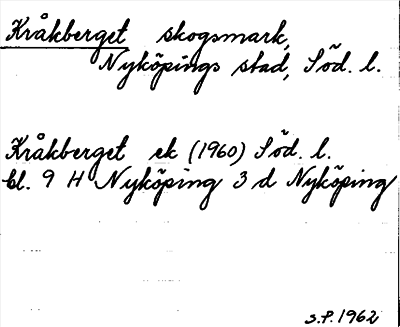 Kråkberget skogsmark,
Nyköpings stad, Söd. l.
Kråkberget ek (1960) Söd. l.
bl. 9 H Nyköping 3 d Nyköping
S.P. 1962